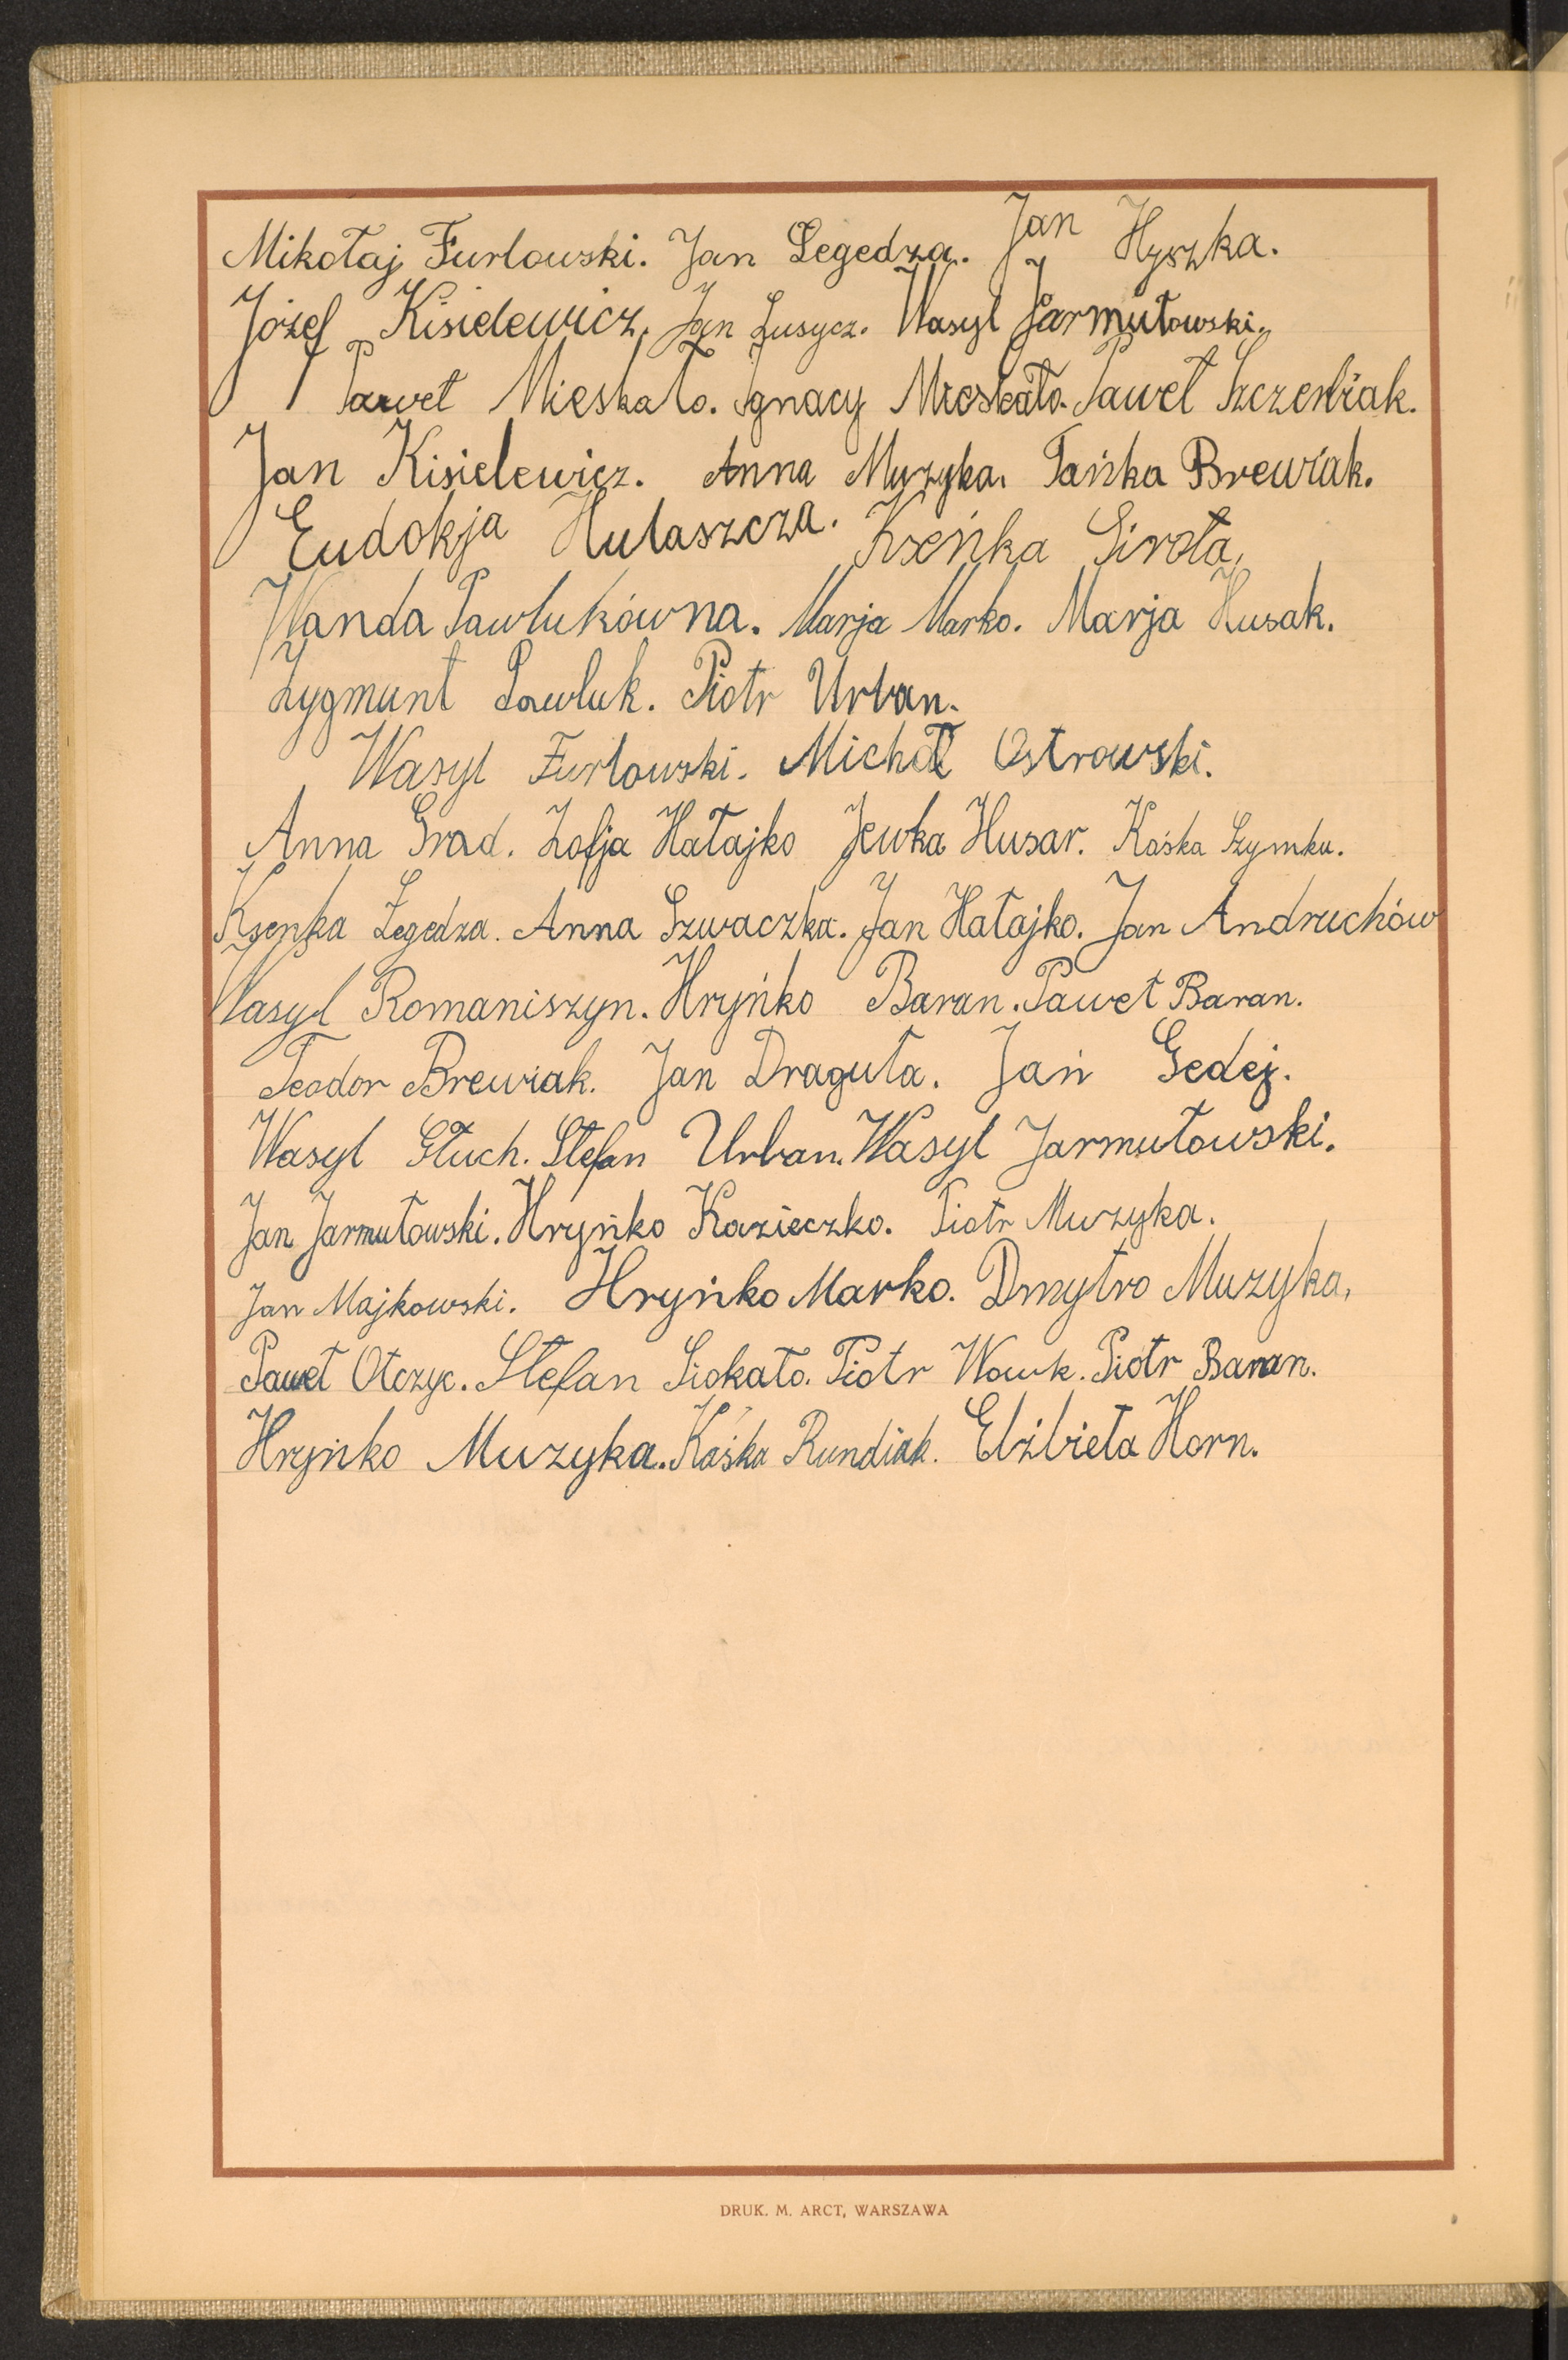 Mikołaj Furłowski. Jan Legedza. Jan Hyszka.
Józef Kisielewicz. Jan Lusycz. Wasyl Jarmułowski.
Paweł Mieskało. Ignacy Mieskało. Paweł Szczerbiak.
Jan Kisielewicz. Anna Muzyka. Tańka Brewiak.
Eudokja Hułaszcza. Kseńka Sirota.
Wanda Pawlukówna. Marja Marko. Marja Husak.
Zygmunt Pawluk. Piotr Urban.
Wasyl Furłowski. Michał Ostrowski.
Anna Grad. Zofja Hałajko Jewka Husar. Kaśka Szymku.
Ksenka Legedza. Anna Szwaczka. Jan Hałajko. Jan Andruchów
Wasyl Romaniszyn. Hryńko Baran. Paweł Baran.
Teodor Brewiak. Jan Draguła. Jań Gedej.
Wasyl Głuch. Stefan Urban. Wasyl Jarmułowski.
Jan Jarmułowski. Hryńko Kazieczko. Piotr Muzyka.
Jan Majkowski. Hryńko Marko. Dmytro Muzyka.
Paweł Otczyc. Stefan Siokało. Piotr Wowk. Piotr Baran.
Hryńko Muzyka. Kaśka Rundiak. Elżbieta Horn.
DRUK. M. ARCT, WARSZAWA